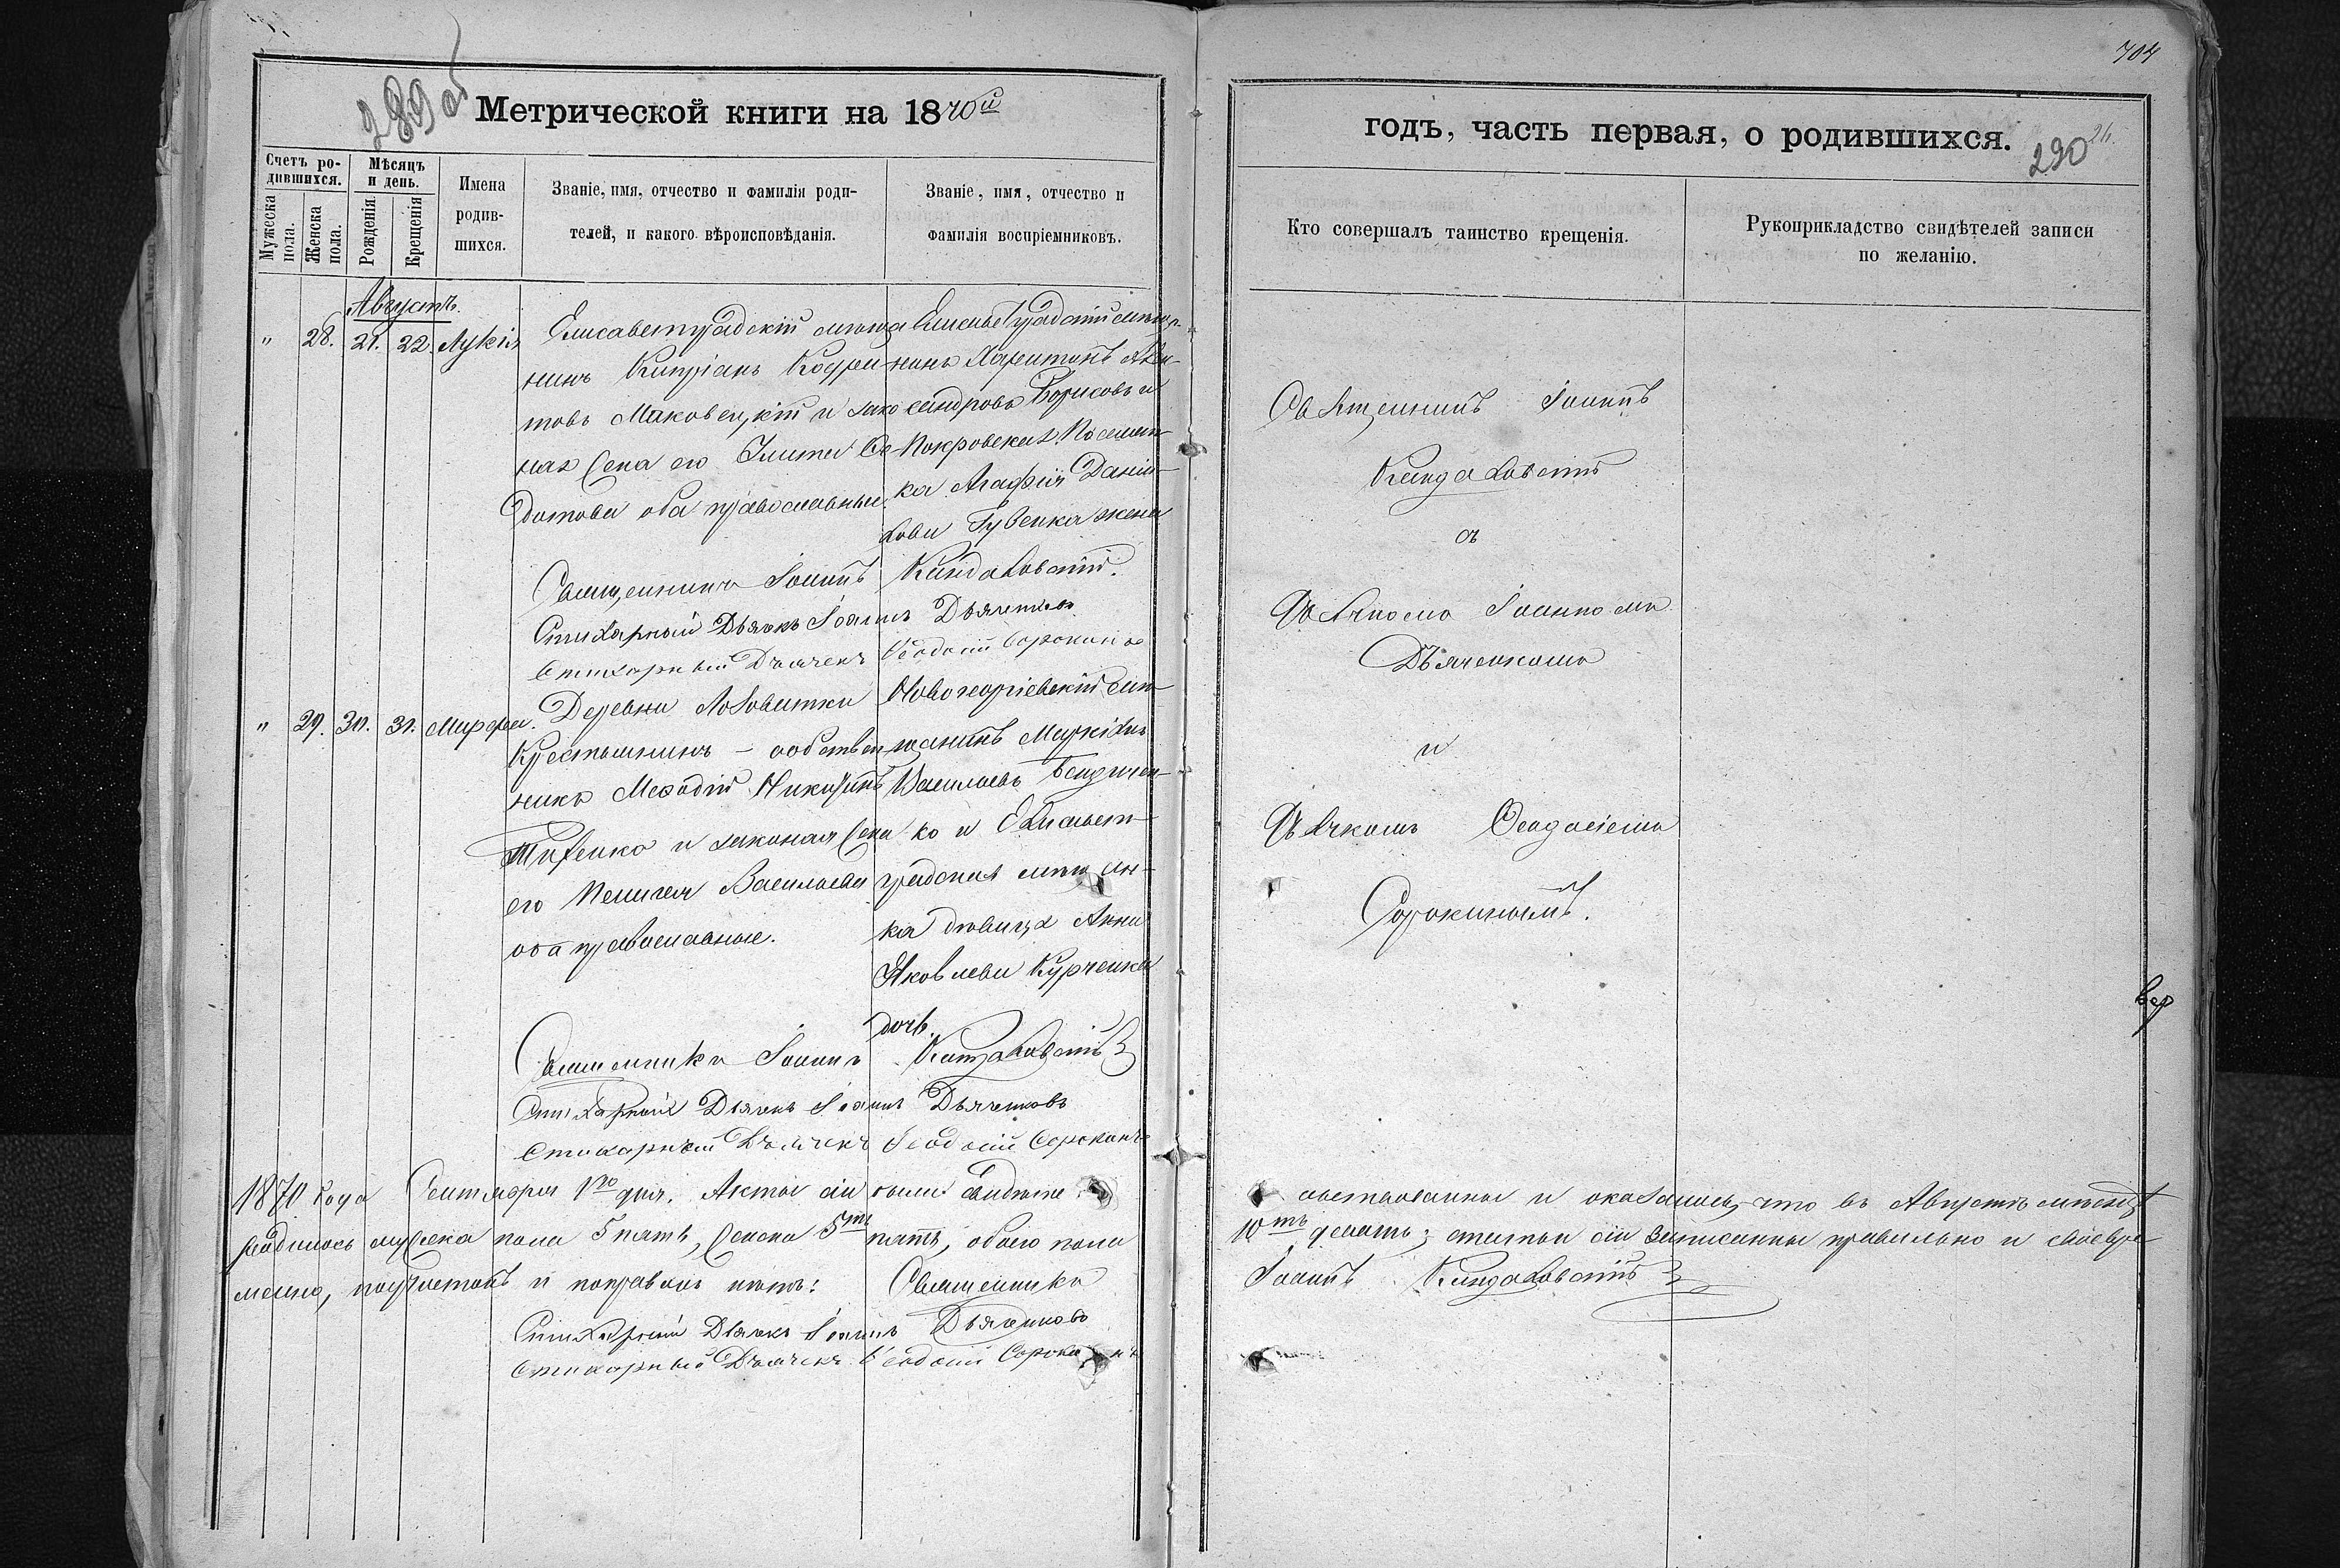 704
289об
Метрической книги на 1870й
годъ, часть первая, о родившихся.
290
26.
Счетъ ро-
дившихся.
Мѣсяцъ
и день.
Мужеска
пола.
Женска
пола.
Рожденія.
Крещенія
Имена
родив-
шихся.
Званіе, имя, отчество и фамилія роди-
телей, и какого вѣроисповѣданія.
Званіе, имя, отчество и
фамилія воспріемниковъ.
Кто совершалъ таинство крещенія.
Рукоприкладство свидѣтелей записи
по желанію.
Августъ.
" 28. 21. 22. Лукія
Елисаветградскій мѣща
нинъ Кипріанъ Кодра
товъ Маковецкій и зако
ная жена его
Ѳедотова оба православные.
Елисаветградскій мѣща-
нинъ Харитонъ Алек-
сандровъ Борисовъ и
Покровская Поселян-
ка Агафія Даніи-
лова Губенка жена
Священникъ Іоаннъ Киндаловскій.
Стихарный Дьячекъ Іоаннъ Дьяченковъ
Стихарный Дьячекъ Ѳеодосій Сорокинъ
Священникъ Іоаннъ
Киндаловскій
съ
Дьячкомъ Іоанномъ
Дьяченкомъ
и
Дьячкомъ Ѳеодосіемъ
Сорокинымъ.
" 29. 30. 31. Марфа.
Деревни Лозоватки
Крестьянинъ - собствен
никъ Меѳодій Никитинъ
и законая жена
его Пелагея Васильева
оба православные.
Новогеоргіевскій мѣ-
щанинъ Маркіанъ
Васильевъ
ко и Елисавет-
градская мѣщан-
ка дѣвица Анна
Яковлева Курченкова
дочь.
Священникъ Іоаннъ Киндаловскій
Стихарный Дьячекъ Іоаннъ Дьяченковъ
Стихарный Дьячекъ Ѳеодосій Сорокинъ
вер
1870 года Сентября 1го дня. Акты сіи были свидѣте
льствованны и оказалось, что въ Августѣ мѣсяцѣ
родилось мужска пола 5 пять, женска 5ть пять, обоего пола
10ть десять; статьи сіи записанны правильно и своевре
менно, подчистокъ и поправокъ нѣтъ: Священникъ
Іоаннъ Киндаловскій
Стихарный Дьячекъ Іоаннъ Дьяченковъ
Стихарный Дьячекъ Ѳеодосій Сорокинъ